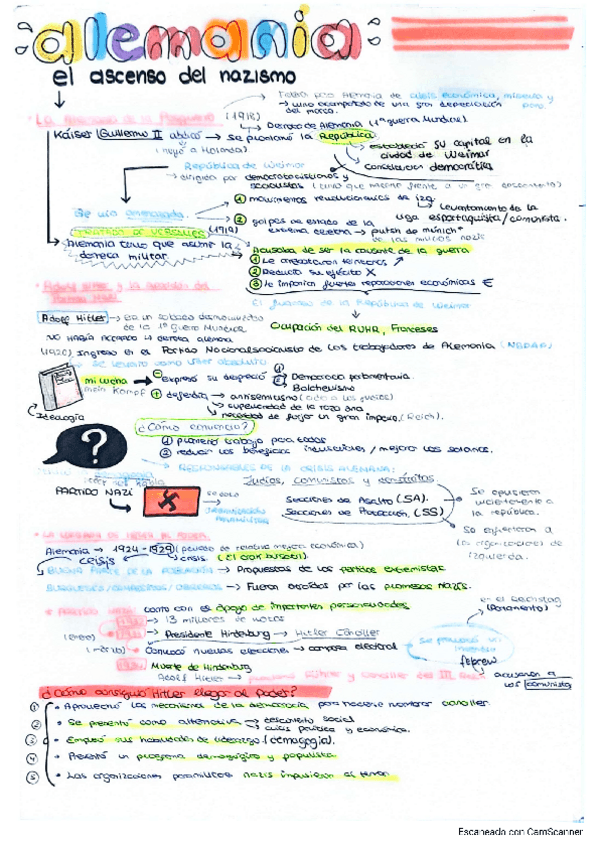 alemania:
el ascenso del nazismo
crisis económica, miseria y paro.
→ vino acompañado de una gran depreciación del marco.
• La República de la Posguerra (1918)
Derrota de Alemania (1ª guerra Mundial).
Kaiser (Guillermo II) abdicó → Se proclamó la República
(huyó a Holanda)
estableció su capital en la ciudad de Weimar
Constitución democrática
República de Weimar
→ dirigida por democratacristianos y socialistas (tuvo que hacer frente a un gran descontento)
① movimientos revolucionarios de izq.
levantamiento de la liga espartaquista/comunista.
Se vio amenazada
② golpes de estado de la extrema derecha → putsch de munich"
TRATADO DE VERSALLES (1919)
Alemania tuvo que asumir la derrota militar.
Acusaba de ser la causante de la guerra
① Le arrebataron territorios
② Redució su ejército X
③ le imponía fuertes reparaciones económicas €
El fracaso de la República de Weimar
Ocupación del RUHR, Franceses
Adolf Hitler → Era un soldado desmovilizado de la 1ª guerra Mundial
NO HABÍA ACEPTADO la derrota alemana
(1920) Ingresó en el Partido Nacionalsocialista de los trabajadores de Alemania (NSDAP)
Se levantó como líder absoluto
mi lucha
Mein Kampf
Ideología
⊖ expresó su desprecio
① Democracia parlamentaria
② Bolchevismo
⊕ defendía → antisemitismo (odio a los judíos)
→ superioridad de la raza aria
→ necesidad de forjar un gran imperio (Reich).
¿Cómo convencía?
?
① prometió trabajo para todos
② reducir los beneficios industriales / mejorar los salarios.
RESPONSABLES DE LA CRISIS ALEMANA:
Judíos, comunistas y demócratas
PARTIDO NAZI
ORGANIZACIÓN PARAMILITAR
Secciones de Asalto (SA).
Secciones de Protección, (SS)
Se opusieron violentamente a la república.
Se enfrentaron a las organizaciones de izquierda.
• LA LLEGADA DE HITLER AL PODER
Alemania → 1924 - 1929 (periodo de relativa mejora económica)
crisis
crisis (El crak bursátil)
BUENA PARTE DE LA POBLACIÓN → Propuestas de los partidos extremistas
BURGUESES/CAMPESINOS/OBREROS → Fueron atraídos por las promesas nazis.
• PARTIDO NAZI contó con el apoyo de importantes personalidades
→ 13 millones de votos
(enero) → Presidente Hindenburg → Hitler Canciller
(marzo) → Convocó nuevas elecciones → campaña electoral
en el Reichstag (Parlamento)
Se provocó un incendio febrero
acusaron a los comunista
Muerte de Hindenburg
Adolf Hitler →
¿Cómo consiguió Hitler llegar al Poder?
① • Aprovechó los mecanismos de la democracia para hacerse nombrar canciller.
② • Se presentó como alternativa → descontento social
crisis política y económica.
③ • Empleó sus habilidades de liderazgo (demagogia).
④ • Presentó un programa demagógico y populista
⑤ • Las organizaciones paramilitares nazis impusieron el terror.
Escaneado con CamScanner